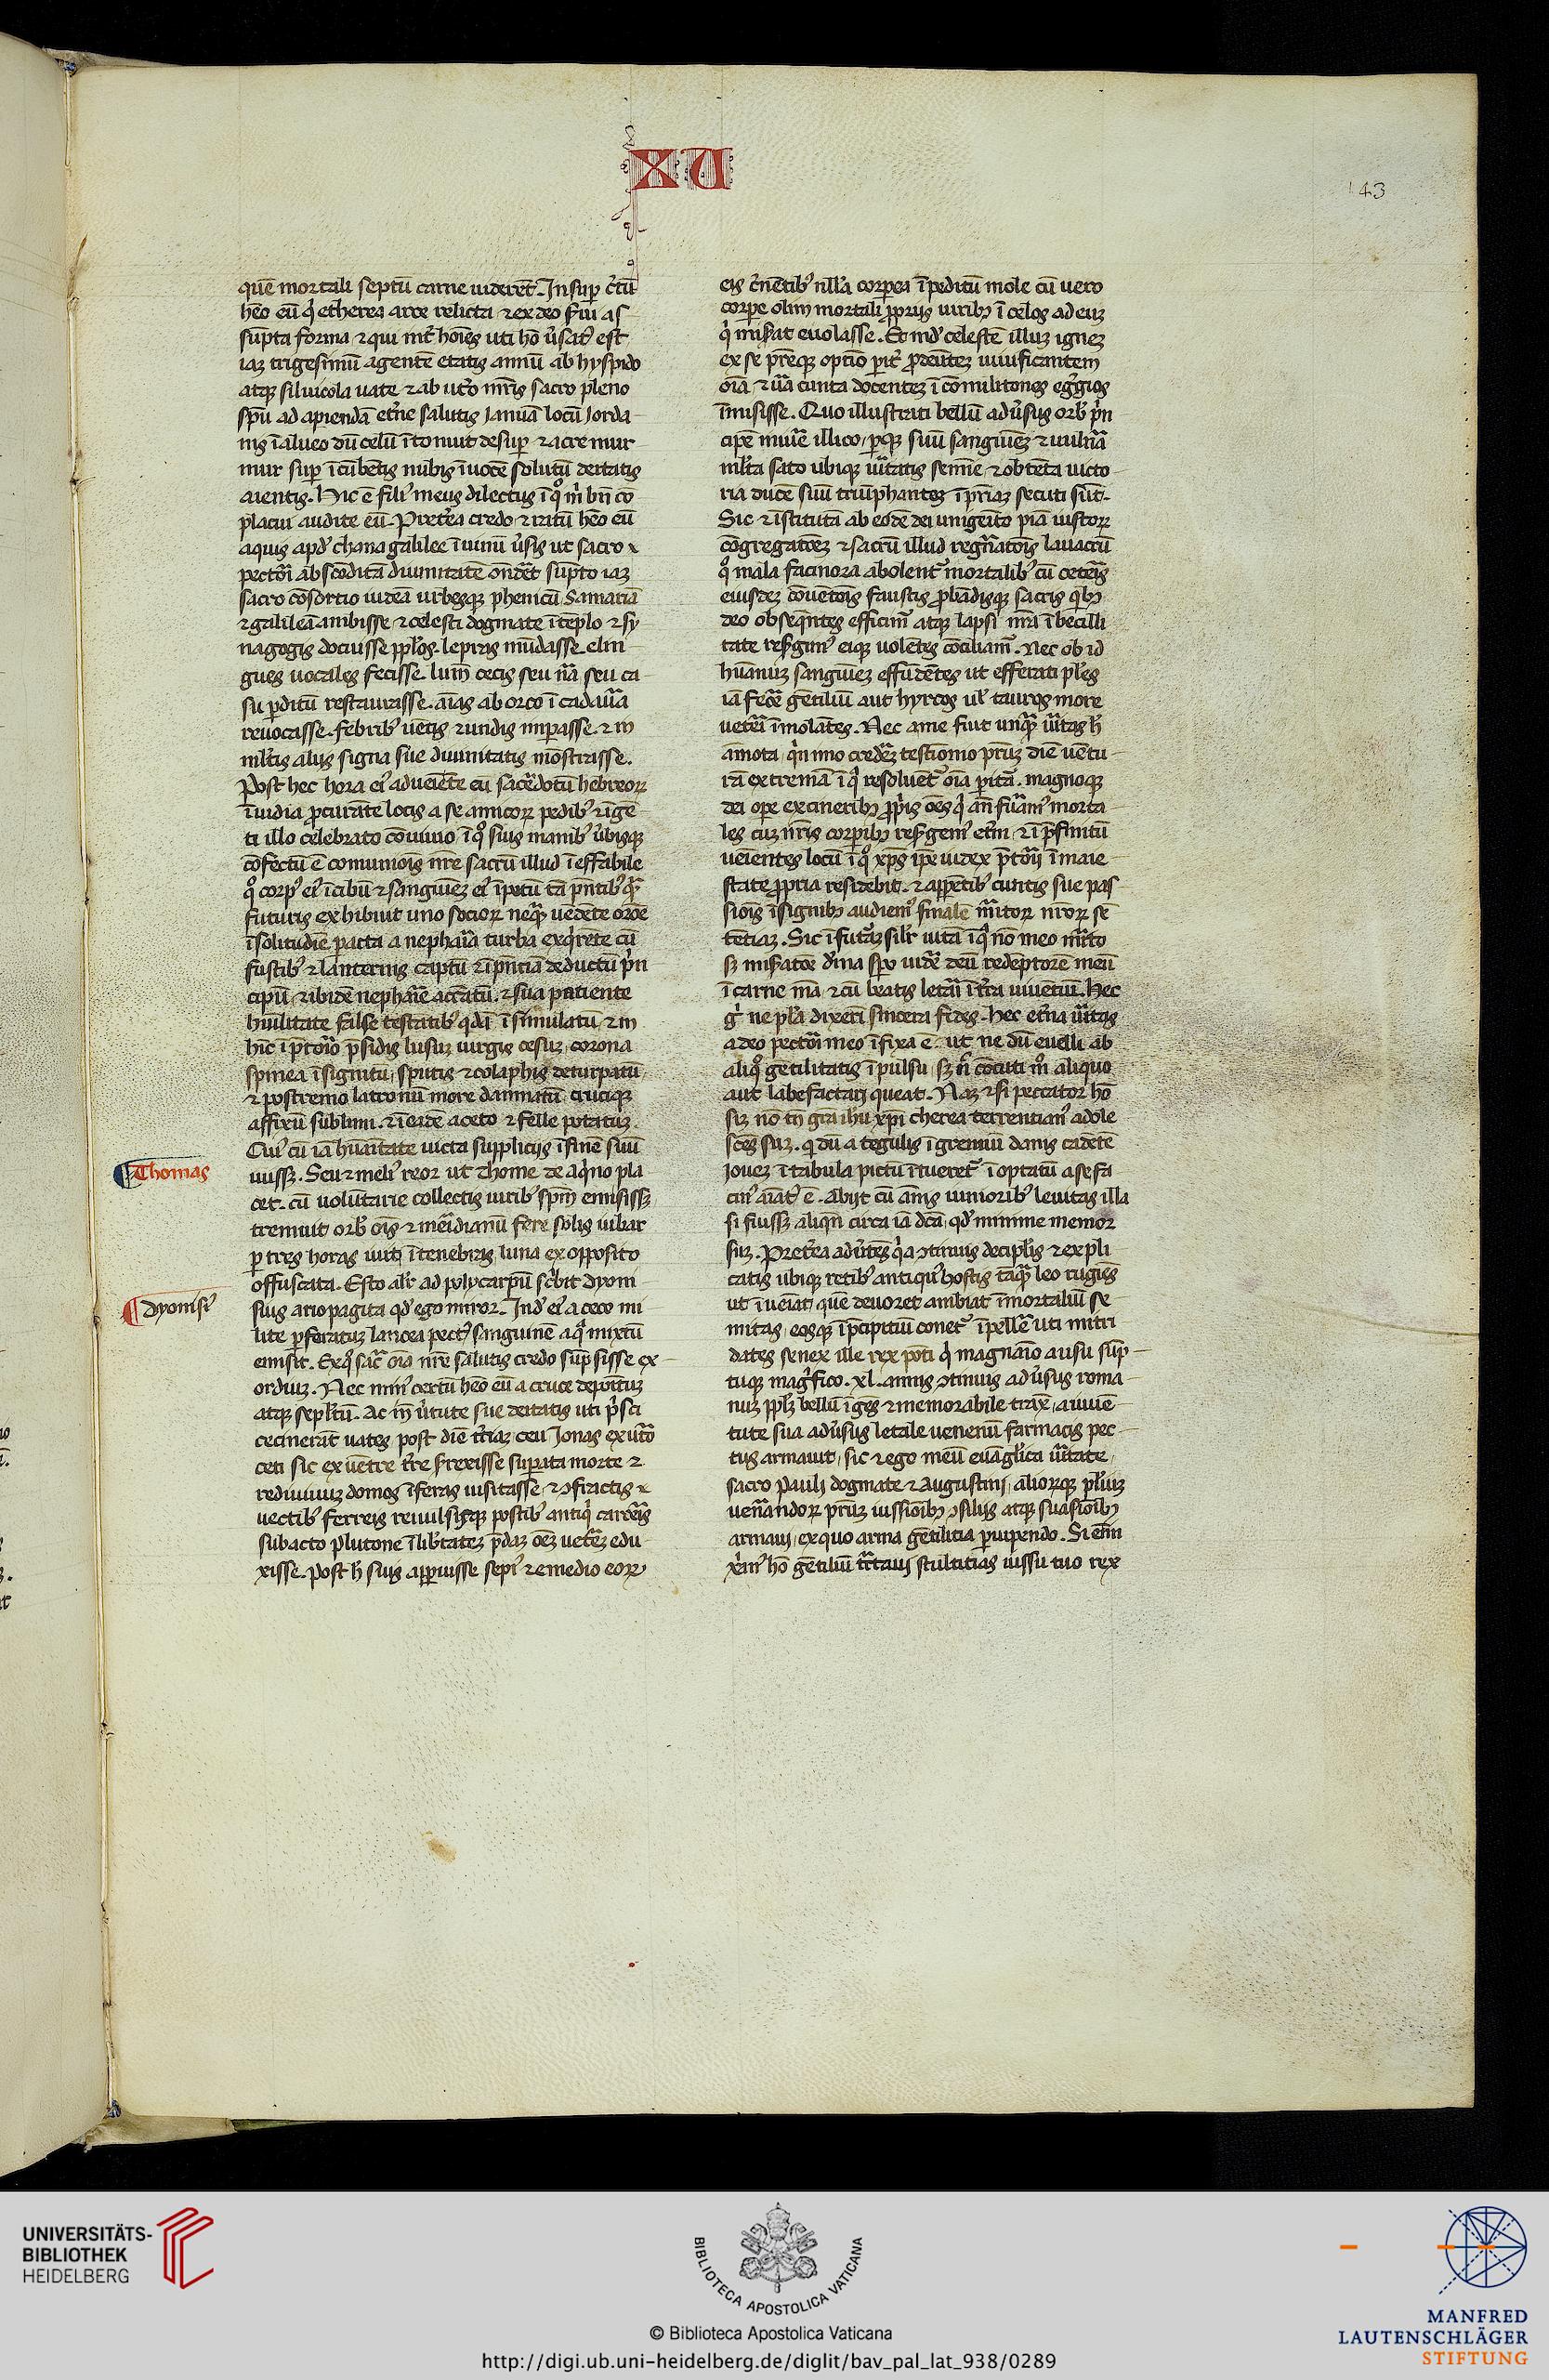 XV
143
quē mortali septū carne viderēt. Insup c̄tū
hēo eū q̇ etherea arce relicta ⁊ ex deo s̄viī as
sūpta forma ⁊ qui int̄ hoīes uti hō v̄satꝰ est
iaꝫ trigesimū agentē etatis annū ab hyspido
atqꝫ siluicola vate ⁊ ab ut̄o mr̄is sacro pleno
spū ad apiendā et̄ne salutis januā locū jorda
nis ī alueo dū celū ītonuit desup ⁊ acre mur
mur sup īcūbētis nubis ī uocē solutū deitatis
aientis. Hic ē filiꝰ meus dilectus ī qͦ m̄ bn̄ cō
placui audite eū. Pret̄ea credo ⁊ ratū hēo eū
aquis apd̓ chana galilee ī uinū v̄sis ut sacro
pectori abscōditā diuinitatē ondēt sūpto iaꝫ
sacro cōsortio iudea urbesqꝫ phenicū Samariā
⁊ galileā ambisse ⁊ celesti dogmate ī tēplo ⁊ sy
nagogis docuisse pplōs. lepras mūdasse. elin
gues uocales fecisse. lum̄ cecis seu nā seu ca
su pditū restaurasse. aīas ab orco ī cadauā
reuocasse. febribꝰ uētis ⁊ undis imp̄asse. ⁊ in
ml̄tis aliis signa sue diuinitatis mōstrasse.
Post hec hora eiꝰ adueiēte cū sacerdotū hebreoꝝ
īuidia pcurāte locis a se amicoꝝ pedibꝰ ⁊ īgē
ti illo celebrato cōuiuio ī qͦ suis manibꝰ v̄bisqꝫ
cōfectū ē comunioīs nrē sacrū illud īeffabile
qͦ corpꝰ eiꝰ ī cibū ⁊ sanguineꝫ eiꝰ ī potū tā pn̄tibꝰ qͣ
futuris exhibuit uno socioꝝ neqͣ uēdente oroē
ī solitudīe pacta a nepharia turba exq̇rēte cū
fustibꝰ ⁊ lanternis captū ⁊ ī pn̄tiā deductū p̄n
cipū ⁊ ibidē nepharie accatū ⁊ sua patiente
huīlitate false testātibꝰ qͥdā īsimulatū ⁊ in
hinc ī ptorio p̄sidis lusuꝫ uirgis cesuꝫ corona
spinea īsignitū sputis ⁊ colaphis deturpatū
⁊ postremo latronū more damnatū crucique
affixū sublimi. ⁊ ī eadē aceto ⁊ felle potatuꝫ.
Cui cū iā huānitate uicta suppliciis ī finē suū
iuissꝫ. Seu ⁊ meliꝰ reor ut thome de aq̇no pla
cet. cū uolūtarie collectis uiribꝰ spm̄ emisissꝫ
tremuit orbꝰ oīs ⁊ meridianū fere solis iubar
p tres horas uīt ī tenebras luna ex opposito
offuscata. Esto alr̄ ad polycarpū sc̄bit dyoni
sius ariopagita qd̓ ego miror. Indꝰ eiꝰ a ceco mi
lite pforatuꝫ lancea pectꝰ sanguinē aqͣ mixtū
emisit. Ex qͦ sac̄ oīa nrē salutis credo sūpsisse ex
orduꝫ. Nec minꝰ certū hēo eū a cruce depoītuꝫ
atqꝫ sepltū. Ac in v̄tute sue deitatis uti p̄sci
cecinerāt uates post diē t̄tiaꝫ ceu Jonas ex ut̄o
ceti sic ex uētre t̄re s̄rexisse supata morte ⁊
rediuiuuꝫ domos īferas uisitasse ⁊ ↄfractis
uectibꝰ ferreis reuulsisqꝫ postibꝰ antiq̇ carceris
subacto plutone ī libtateꝫ p̄daꝫ oēꝫ uet̄eꝫ edu
xisse. post h̄ suis appuisse sepiꝰ ⁊ e medio eoꝝ
Thomas
dyonisiꝰ
eis c̄nētibꝰ nll̄a corporea īpeditū mole cū uero
corpe olim mortali ppriis uiribꝫ ī celos ad euꝫ
q̇ mis̄at euolasse. Et indꝰ celestē illuꝫ igneꝫ
ex se preqꝫ optīo pit̄ pdeūteꝫ uiuificantem
oīa ⁊ ūa cunta docenteꝫ ī cōmilitones eg̓gios
īmisisse. Quo illustrati bellū adv̄sus orbꝰ p̄n
cipē muīe illico, pqꝫ suū sanguineꝫ ⁊ uulnā
ml̄ta sato ubiqꝫ uītatis semīe ⁊ obtēta uicto
ria ducē suū triūphanteꝫ ī pr̄iaꝫ secuti sūt.
Sic ⁊ īstitutā ab eodē dei unigeīto piā iustoꝝ
cōgregatoeꝫ ⁊ sacrū illud regn̄atoīs lauacrū
qͦ mala facinora abolent̄ mortalibꝰ cū ceteris
eiusdeꝫ cōuētoīs faustis pbādisqꝫ sacris qͥbꝫ
deo obseqn̄tes efficimꝰ atqꝫ lapsi nrā ībecilli
tate res̄gimꝰ eiqꝫ uolētes cōciliam̄. Nec ob id
huānuꝫ sangineꝫ effūdētes ut efferati ples
iā fecē gētiliū aut hyrcos ul̄ tauros more
uetēi īmolātes. Nec a me fiut unqͣ uītas h̄
amota, q̇nimo credēꝫ testīonio priꝫ diē uētu
rā extremā ī q̇ resoluet̄ oīa pitā. magnoqꝫ
dei ope ex cineribꝫ ppriis oēs q̇ an̄ fuāmꝰ morta
les cuꝫ nr̄is corpibꝫ res̄gemꝰ et̄ni ⁊ ī p̄finitū
ueientes locū ī qͦ xp̄s ip̄e iudex p̄torii ī maie
state ppria residebit. ⁊ appentibꝰ cunctis sue pas
sionīs īsignibꝫ audiemꝰ finalē mr̄itoꝝ nr̄oꝝ sē
tētiaꝫ. Sic ī futāꝫ silr̄ uitā ī q̇ nō meo mr̄ito
sꝫ mis̄atoē d̓ina spo uidē deū redēptorē meū
ī carne mā ⁊ cū beatis letari ī t̄ra uiuētiū. Hec
g̊ ne pl̄a dixerī sincera fides. hec et̄na uītas
adeo pectori meo īfixa ē ut ne dū euelli ab
aliqͦ gētilitatis īpulsu, sꝫ n̄ cōcuti m̊ aliquo
aut labefactari queat. Naꝫ ⁊ si peccator hō
siꝫ nō tn̄ gra ihu xpī cherea terrentianꝰ adole
scēs suꝫ. q dū a tegulis ī gremiū danis cadētē
Jouez ī tabula pictū ītueret̄ ī optatū a se fa
cinꝰ aīatꝰ ē. Abiit cū annis iunioribꝰ leuitas illa
si fuissꝫ aliqn̄ circa iā dc̄a, qd̓ minime memor
suꝫ. Pret̄ea adūtēs q̇a ↄtinuis decipulis ⁊ expli
catis ubiqꝫ retibꝰ antiquꝰ hostis tāqͣ leo rugiēs
ut īueiāt quē deuoret ambiat ī mortaliū se
mitas, eosqꝫ ī p̄cipitiū conet̄ īpellē uti mitri
dates senex ille rex pōti q̇ magnanīo ausu sūp
tuqꝫ mag̓fico .xl. annis ↄtinuis adv̄sus roma
nuꝫ pplꝫ bellū īgēs ⁊ memorabile traxꝰ, a iuuē
tute sua adv̄sus letale uenenū farmacis pec
tus armauit, sic ⁊ ego meū euāglica uītate,
sacro pauli dogmate ⁊ augustini, alioꝝqꝫ pl̄iuꝫ
uen̄andoꝝ prūꝫ iussioībꝫ ↄsiliis atqꝫ suasioībꝫ
armaui, ex quo arma gētilitia paruipendo. Si em̄
xp̄ianꝰ hō gētiliū tr̄ctaui stultitias iussu tuo rex
UNIVERSITÄTS-
BIBLIOTHEK
HEIDELBERG
BIBLIOTECA APOSTOLICA VATICANA
© Biblioteca Apostolica Vaticana
http://digi.ub.uni-heidelberg.de/diglit/bav_pal_lat_938/0289
MANFRED
LAUTENSCHLÄGER
STIFTUNG